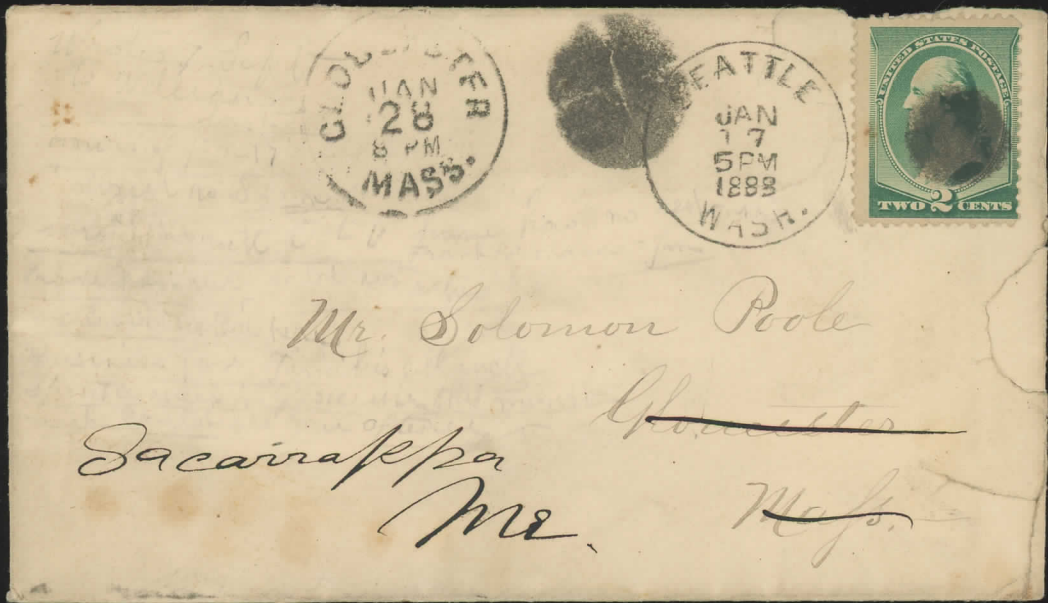 GLOUCESTER
JAN
28
8 PM
MASS.
SEATTLE
JAN
17
5PM
1888
WASH.
UNITED STATES POSTAGE
TWO 2 CENTS
Mr. Solomon Poole
Gloucester
Mass.
Sacarrappa
Me.